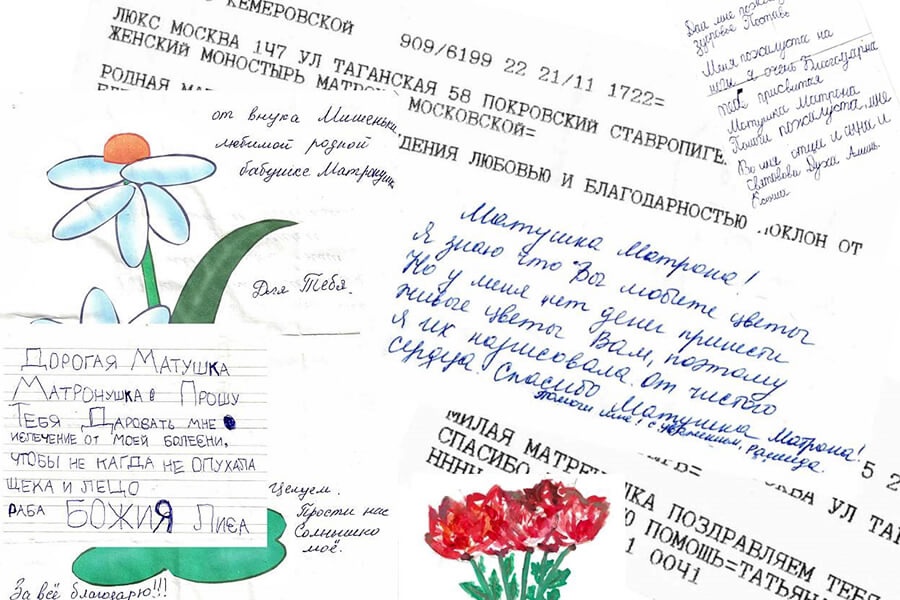 КЕМЕРОВСКОЙ
909/6199 22 21/11 1722=
ЛЮКС МОСКВА 147 УЛ ТАГАНСКАЯ 58 ПОКРОВСКИЙ СТАВРОПИГЕ
ЖЕНСКИЙ МОНОСТЫРЬ МАТРО
МОСКОВСКОЙ=
РОДНАЯ МА
ДЕНИЯ ЛЮБОВЬЮ И БЛАГОДАРНОСТЬЮ ПОКЛОН ОТ
Меня пожалуста на
ноги я очень благодарна
тебе присвятая
Матушка Матрона
Помоги пожалуста мне
Во имя отца и сына и
Святова Духа Аминь
от внука Мишеньки
любимой родной
бабушке Матронушк
Для Тебя.
Матушка Матрона!
Я знаю что Вы любите цветы
Но у меня нет денег принести
живые цветы Вам, поэтому
я их нарисовала от чистого
сердца. Спасибо Матушка Матрона!
Помоги мне! с уважением, Рашида.
ДОРОГАЯ МАТУШКА
МАТРОНУШКА ПРОШУ
ТЕБЯ ДАРОВАТЬ МНЕ
ИЗЛЕЧЕНИЕ ОТ МОЕЙ БОЛЕСНИ,
ЧТОБЫ НЕ КАГДА НЕ ОПУХАЛА
ЩЕКА И ЛЕЦО
РАБА БОЖИЯ ЛИЗА
Целуем.
Прости нас
Солнышко
моё.
За всё благодарю!!!
МИЛАЯ МАТРЕ
СПАСИБО
НННН
5 2
КВА УЛ ТА
ШКА ПОЗДРАВЛЯЕМ ТЕБЯ
Ю ПОМОЩЬ=ТАТЬЯНА
1 0041